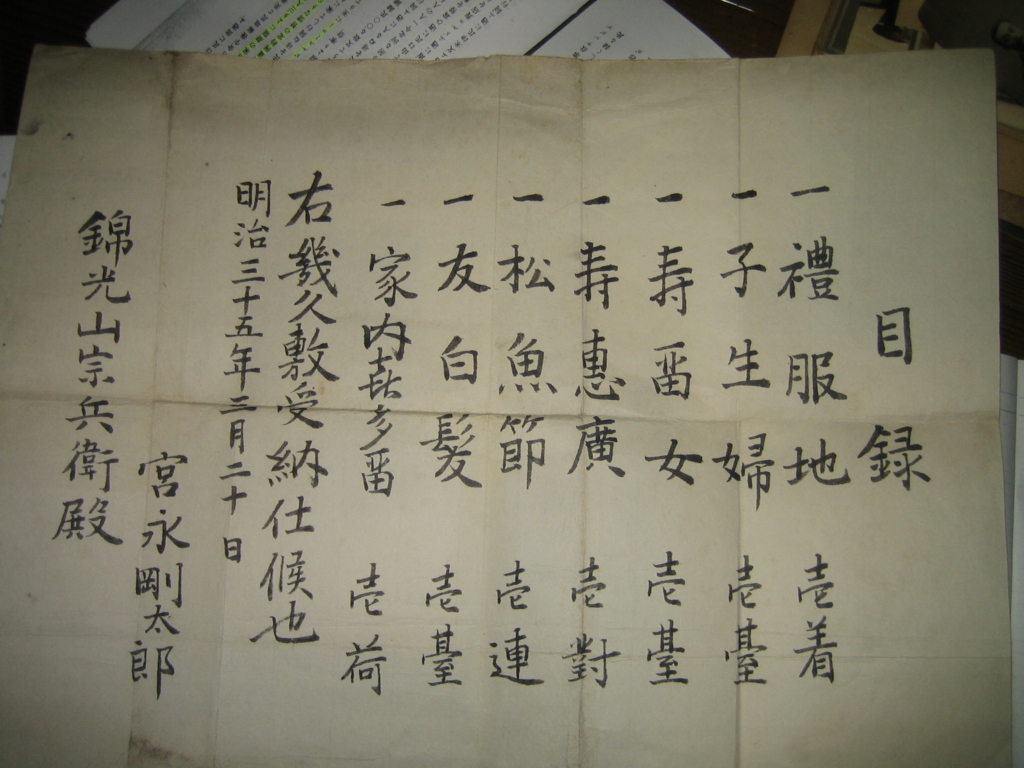 目録
一 禮服地 壱着
一 子生婦 壱臺
一 寿畱女 壱臺
一 寿恵廣 壱對
一 松魚節 壱連
一 友白髪 壱臺
一 家内喜多畱 壱荷
右幾久敷受納仕候也
明治三十五年三月二十日
宮永剛太郎
錦光山宗兵衛殿